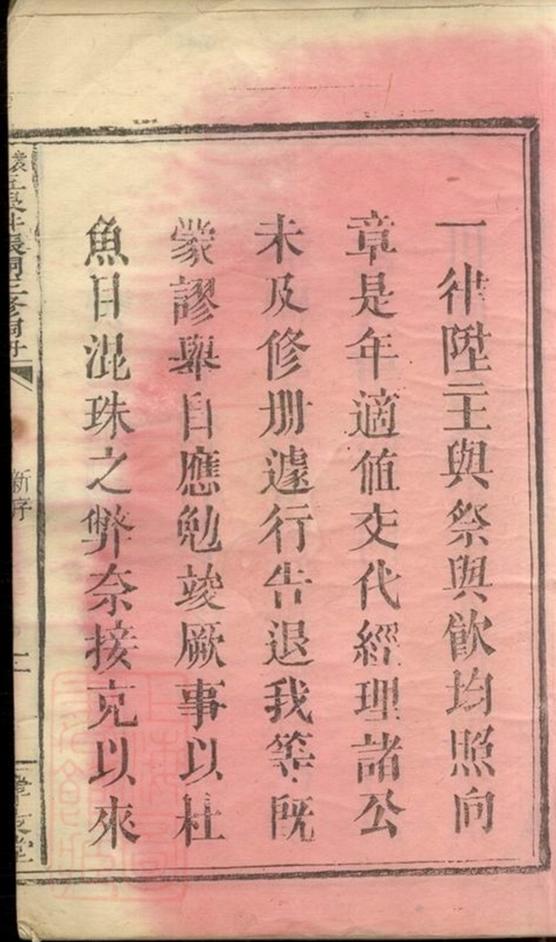 一律陞主與祭與飲均照向
章是年適値交代經理諸公
未及修册遽行告退我等既
蒙謬舉自應勉竣厥事以杜
魚目混珠之弊奈接充以來
新序